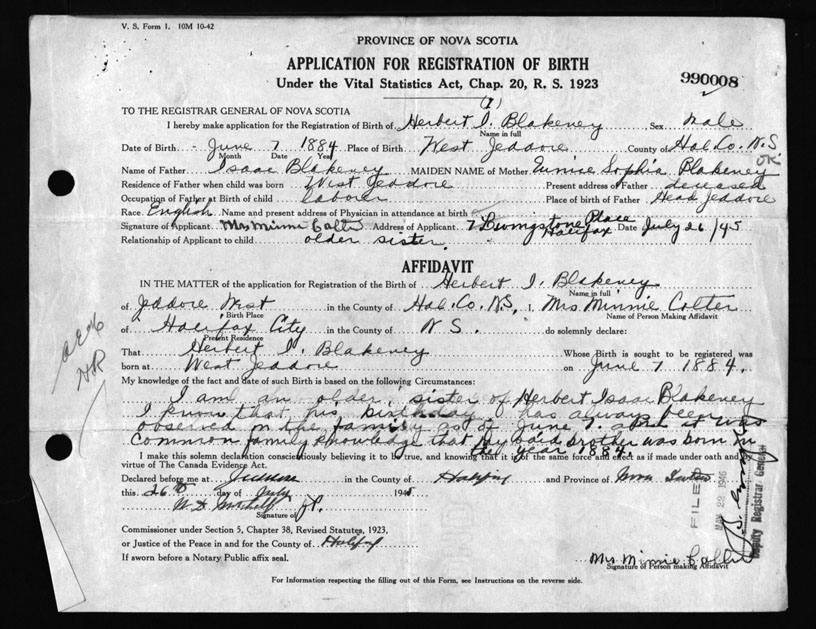 V. S. Form 1. 10M 10-42
PROVINCE OF NOVA SCOTIA
APPLICATION FOR REGISTRATION OF BIRTH
Under the Vital Statistics Act, Chap. 20, R. S. 1923
990008
TO THE REGISTRAR GENERAL OF NOVA SCOTIA
I hereby make application for the Registration of Birth of Herbert I. Blakeney Sex Male
Name in full
Date of Birth June 7 1884 Place of Birth West Jeddore County of Hal. Co. N.S
Month Date Year
OK
Name of Father Isaac Blakeney MAIDEN NAME of Mother Eunice Sophia Blakeney
Residence of Father when child was born West Jeddore Present address of Father deceased
Occupation of Father at Birth of child laborer Place of birth of Father Head Jeddore
Race English Name and present address of Physician in attendance at birth
Signature of Applicant Mrs Minnie Colter Address of Applicant 7 Livingstone Place Halifax Date July 26/45
Relationship of Applicant to child older sister.
AFFIDAVIT
IN THE MATTER of the application for Registration of the Birth of Herbert I. Blakeney
Name in full
of Jeddore West in the County of Hal. Co. N.S. I, Mrs Minnie Colter
Birth Place Name of Person Making Affidavit
of Halifax City in the County of N S. do solemnly declare:
Present Residence
That Herbert I. Blakeney Whose Birth is sought to be registered was
born at West Jeddore on June 7 1884.
My knowledge of the fact and date of such Birth is based on the following Circumstances:
I am an older sister of Herbert Isaac Blakeney
I know that his birthday has always been
observed in the family as of June 7. and it was
Common family knowledge that my said brother was born in
the year 1884.
I make this solemn declaration conscientiously believing it to be true, and knowing that it is of the same force and effect as if made under oath and
virtue of The Canada Evidence Act.
Declared before me at in the County of Halifax and Province of Nova Scotia
this 26th day of July 1945
Signature of J.P.
Commissioner under Section 5, Chapter 38, Revised Statutes, 1923,
or Justice of the Peace in and for the County of Halifax
If sworn before a Notary Public affix seal.
Mrs Minnie Colter
Signature of Person making Affidavit
FILED
MAY 22 1946
Deputy Registrar General
For Information respecting the filling out of this Form, see Instructions on the reverse side.